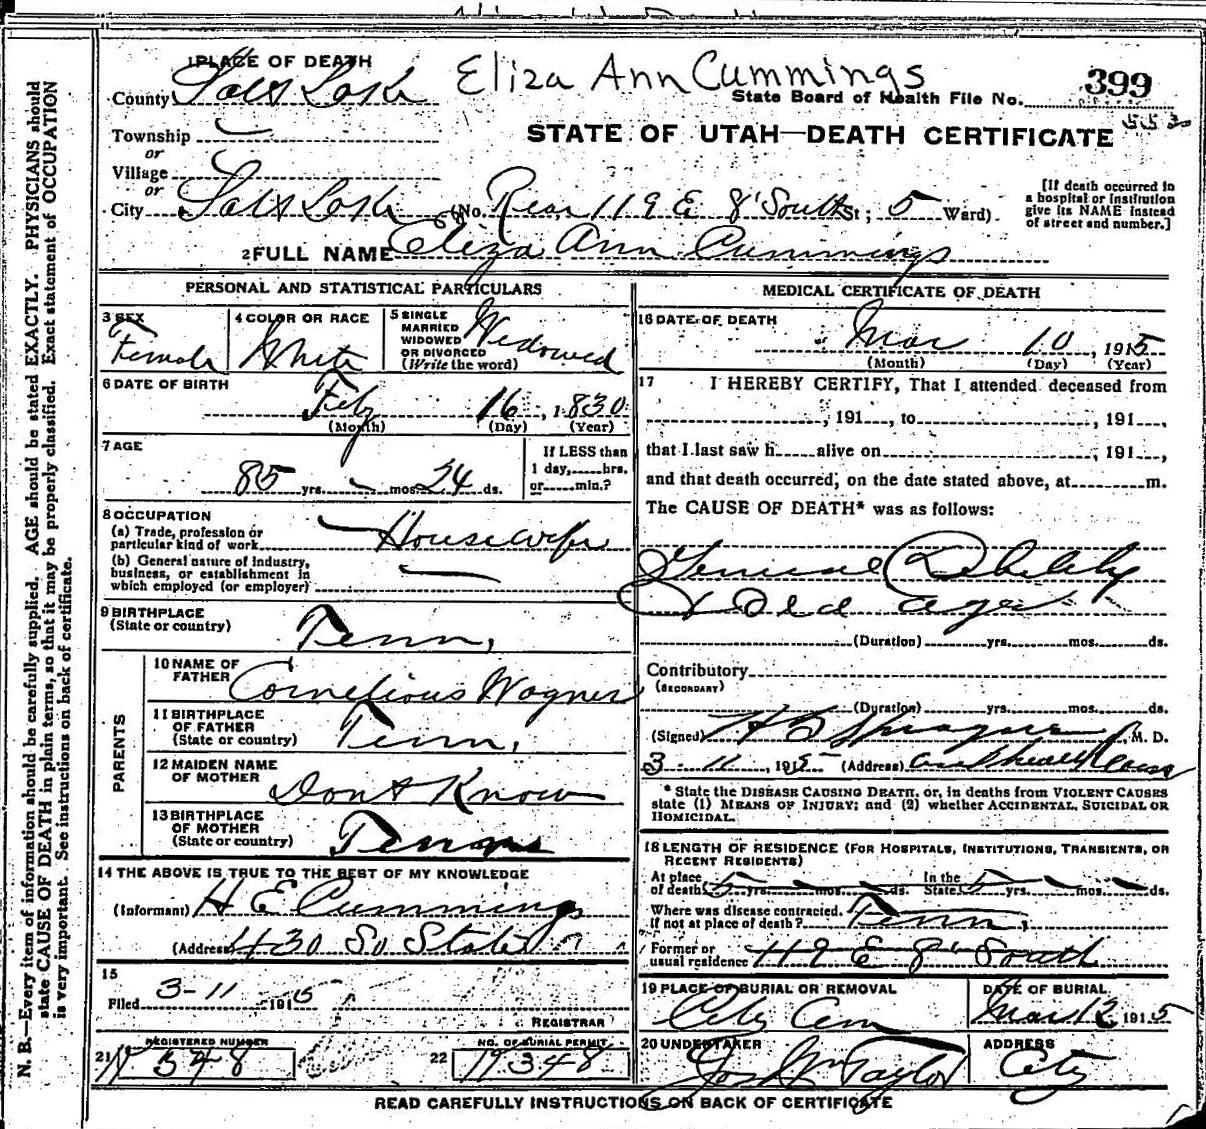 N. B.—Every item of information should be carefully supplied. AGE should be stated EXACTLY. PHYSICIANS should
state CAUSE OF DEATH in plain terms, so that it may be properly classified. Exact statement of OCCUPATION
is very important. See instructions on back of certificate.
1 PLACE OF DEATH
Eliza Ann Cummings
399
County Salt Lake
State Board of Health File No.
Township
or
STATE OF UTAH—DEATH CERTIFICATE
Village
or
City Salt Lake (No. Rear 119 E 8" South St; 5 Ward)
[If death occurred in
a hospital or institution
give its NAME instead
of street and number.]
2 FULL NAME Eliza Ann Cummings
PERSONAL AND STATISTICAL PARTICULARS
3 SEX
Female
4 COLOR OR RACE
White
5 SINGLE
MARRIED
WIDOWED
OR DIVORCED
(Write the word)
Widowed
6 DATE OF BIRTH
Feby 16, 1830
(Month) (Day) (Year)
7 AGE
85 yrs. mos. 24 ds.
If LESS than
1 day, hrs.
or min.?
8 OCCUPATION
(a) Trade, profession or
particular kind of work Housewife
(b) General nature of industry,
business, or establishment in
which employed (or employer)
9 BIRTHPLACE
(State or country)
Tenn,
PARENTS
10 NAME OF
FATHER
Cornelious Wagner
11 BIRTHPLACE
OF FATHER
(State or country)
Tenn,
12 MAIDEN NAME
OF MOTHER
Dont Know
13 BIRTHPLACE
OF MOTHER
(State or country)
14 THE ABOVE IS TRUE TO THE BEST OF MY KNOWLEDGE
(Informant) H E Cummings
(Address) 430 So State
15
Filed 3-11 1915
REGISTRAR
REGISTERED NUMBER
21 348
NO. OF BURIAL PERMIT
22 348
MEDICAL CERTIFICATE OF DEATH
16 DATE OF DEATH
Mar 10, 1915
(Month) (Day) (Year)
17 I HEREBY CERTIFY, That I attended deceased from
, 191 , to , 191 ,
that I last saw h alive on , 191 ,
and that death occurred, on the date stated above, at m.
The CAUSE OF DEATH* was as follows:
General Debility
& Old age
(Duration) yrs. mos. ds.
Contributory
(SECONDARY)
(Duration) yrs. mos. ds.
(Signed) H B Sprague, M. D.
3-11, 1915 (Address)
* State the DISEASE CAUSING DEATH, or, in deaths from VIOLENT CAUSES
state (1) MEANS OF INJURY; and (2) whether ACCIDENTAL, SUICIDAL OR
HOMICIDAL.
18 LENGTH OF RESIDENCE (FOR HOSPITALS, INSTITUTIONS, TRANSIENTS, OR
RECENT RESIDENTS)
At place
of death 5 yrs. mos. ds.
In the
State 5 yrs. mos. ds.
Where was disease contracted,
if not at place of death? Tenn,
Former or
usual residence 119 E 8" South
19 PLACE OF BURIAL OR REMOVAL
City Cem
DATE OF BURIAL
Mar 12 1915
20 UNDERTAKER
Jos Wm Taylor
ADDRESS
City
READ CAREFULLY INSTRUCTIONS ON BACK OF CERTIFICATE